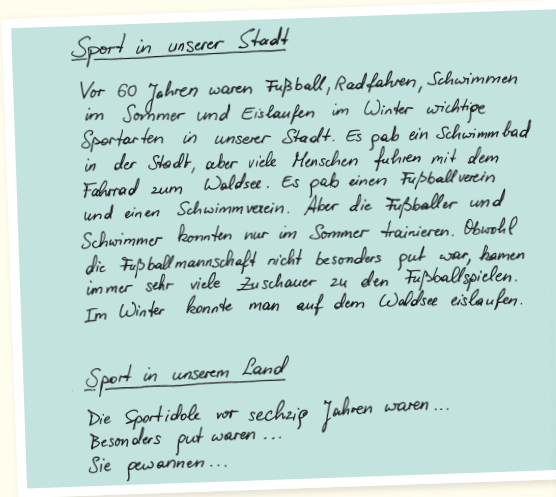 Sport in unserer Stadt
Vor 60 Jahren waren Fußball, Radfahren, Schwimmen
im Sommer und Eislaufen im Winter wichtige
Sportarten in unserer Stadt. Es gab ein Schwimmbad
in der Stadt, aber viele Menschen fuhren mit dem
Fahrrad zum Waldsee. Es gab einen Fußballverein
und einen Schwimmverein. Aber die Fußballer und
Schwimmer konnten nur im Sommer trainieren. Obwohl
die Fußballmannschaft nicht besonders gut war, kamen
immer sehr viele Zuschauer zu den Fußballspielen.
Im Winter konnte man auf dem Waldsee eislaufen.
Sport in unserem Land
Die Sportidole vor sechzig Jahren waren...
Besonders gut waren...
Sie gewannen...